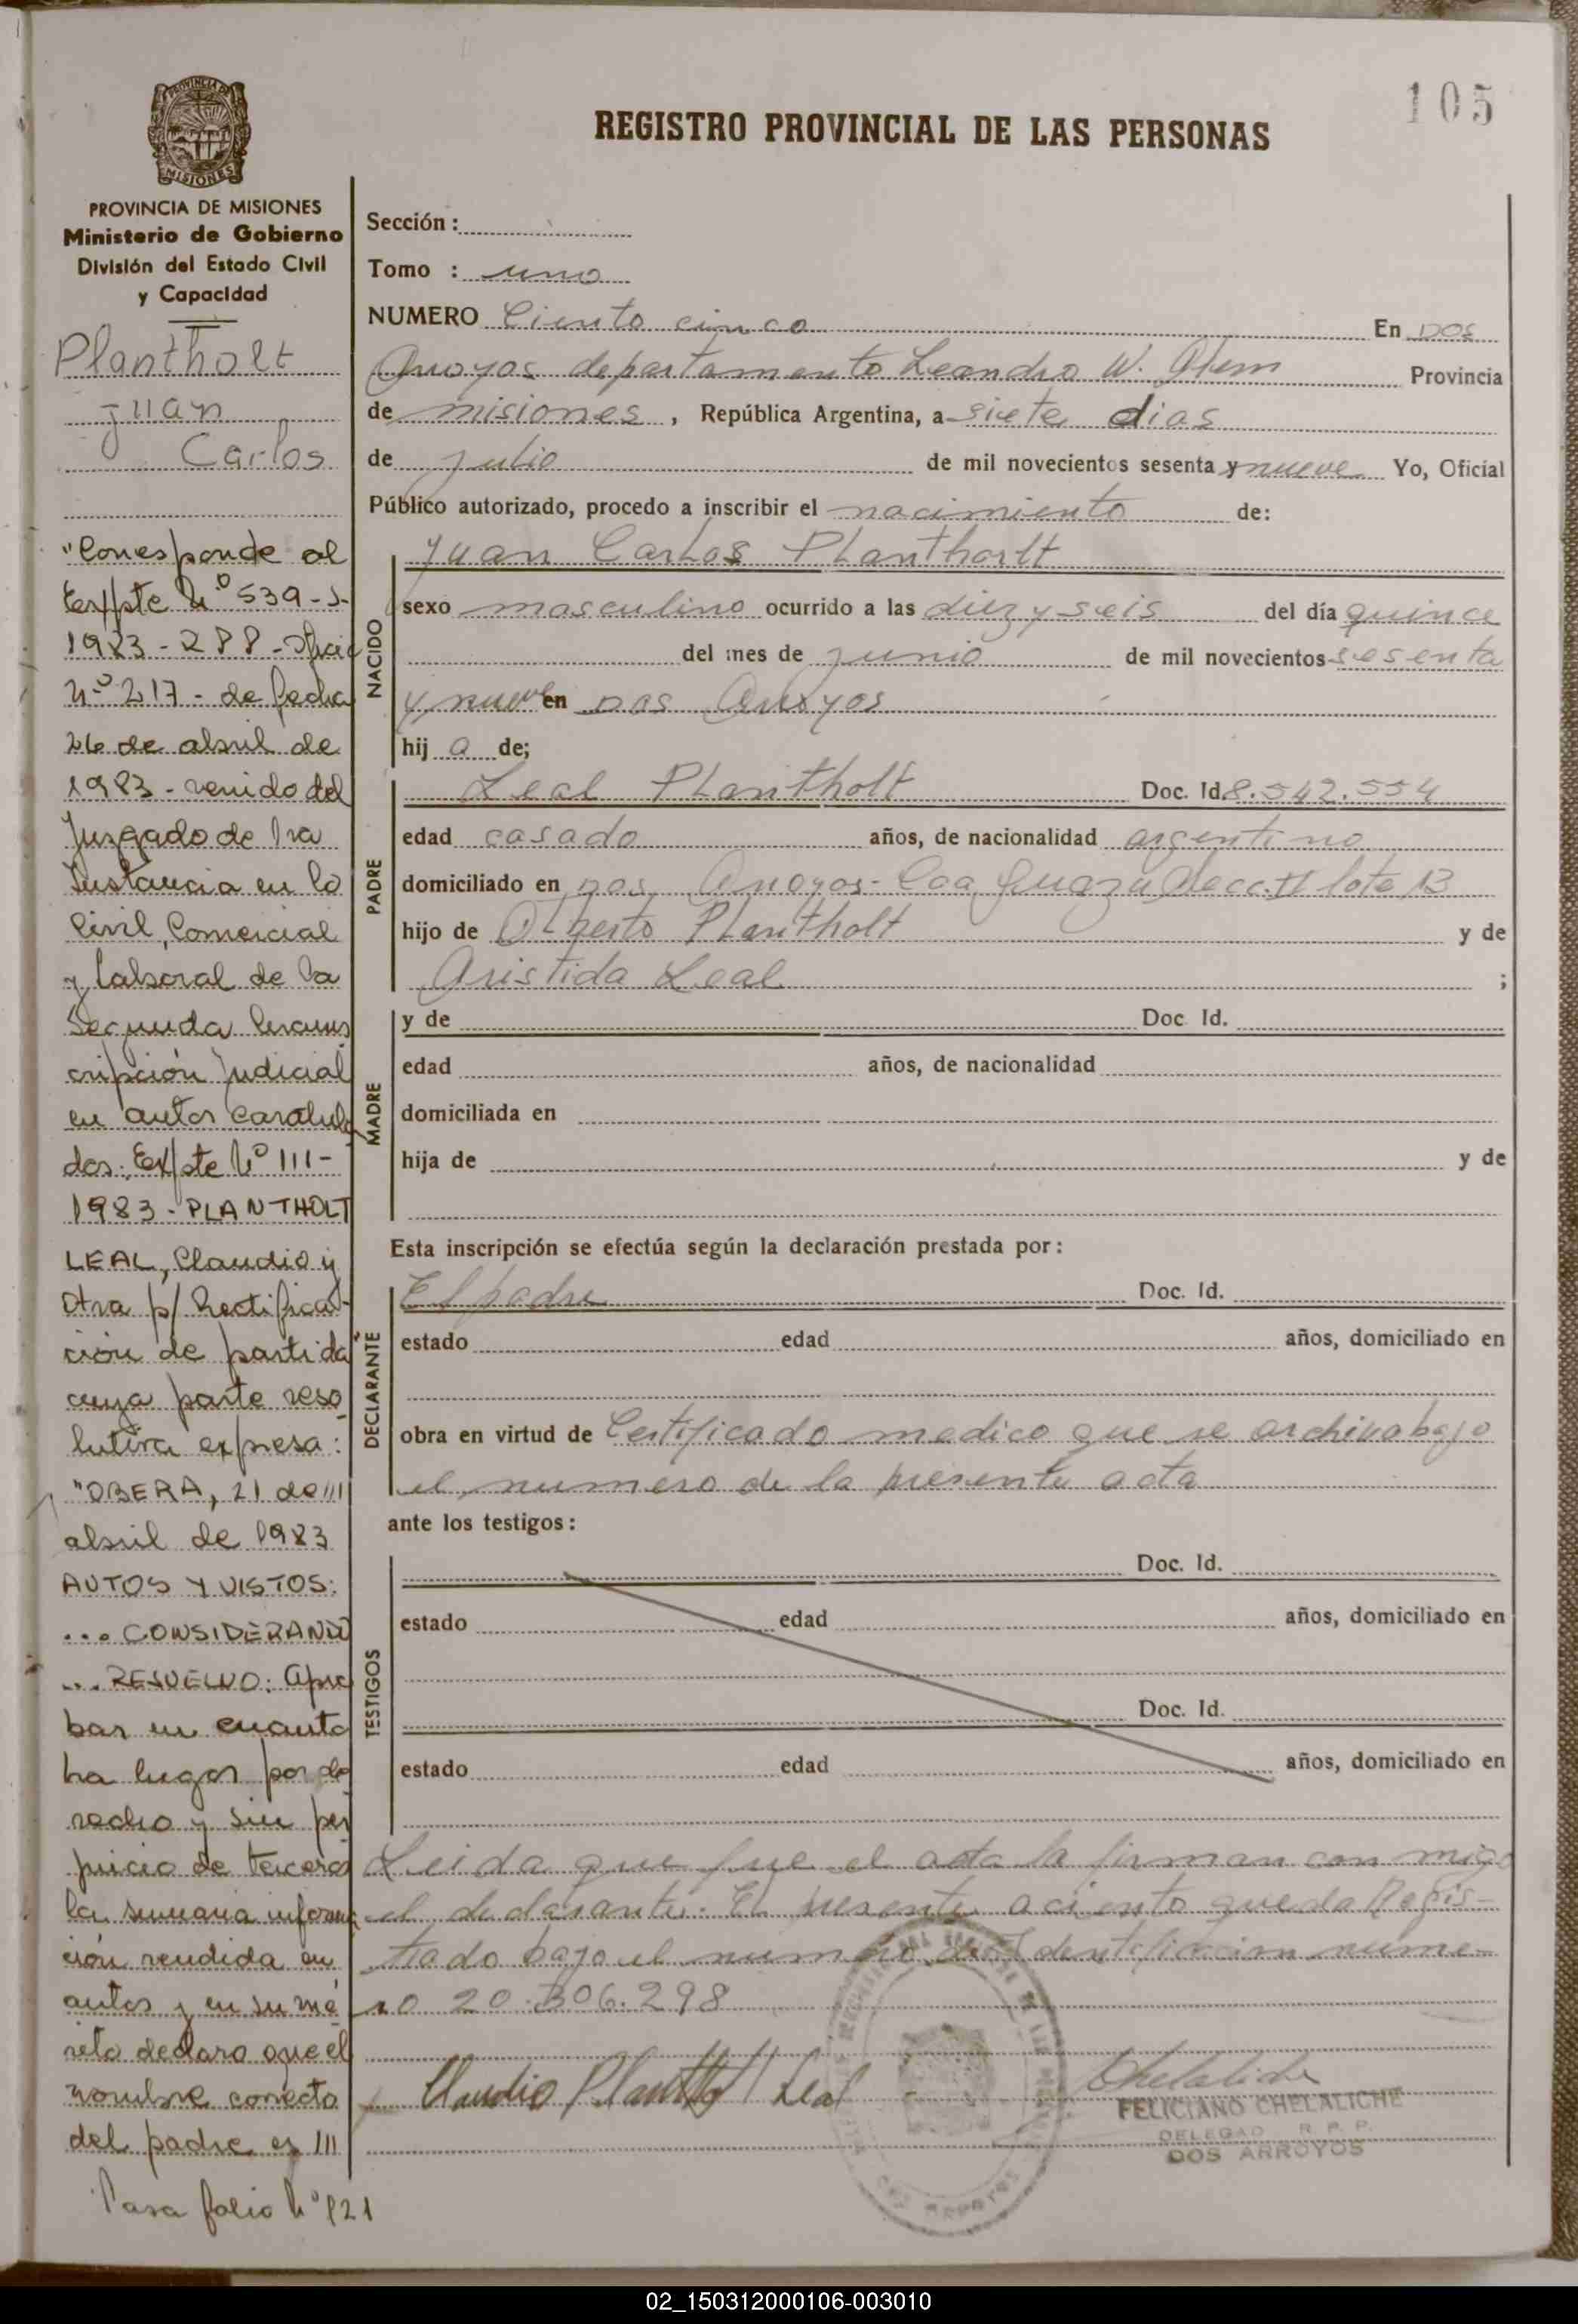 105
REGISTRO PROVINCIAL DE LAS PERSONAS
MISIONES
PROVINCIA DE MISIONES
Ministerio de Gobierno
División del Estado Civil
y Capacidad
Plantholt
Juan
Carlos
"Corresponde al
Expte Nº 539-J-
1983-288-Oficio
Nº 217- de fecha
26 de abril de
1983- venido del
Juzgado de 1ra
Instancia en lo
Civil, Comercial
y Laboral de la
Segunda Circuns
cripción Judicial
en autos caratula
dos: Expte Nº 111-
1983-PLANTHOLT
LEAL, Claudio y
Otra p/ Rectifica
ción de partida
cuya parte reso
lutiva expresa:
"OBERA, 21 de
abril de 1983
AUTOS Y VISTOS:
... CONSIDERANDO
... RESUELVO: Apro
bar en cuanto
ha lugar por de
recho y sin per
juicio de terceros
la sumaria informa
ción rendida en
autos y en su mé
rito declaro que el
nombre correcto
del padre es
Pasa folio Nº 121
Sección :
Tomo : uno
NUMERO Ciento cinco En Dos
Arroyos departamento Leandro N. Alem Provincia
de misiones, República Argentina, a siete dias
de julio de mil novecientos sesenta y nueve Yo, Oficial
Público autorizado, procedo a inscribir el nacimiento de:
NACIDO
Juan Carlos Plantholt
sexo masculino ocurrido a las diez y seis del día quince
del mes de junio de mil novecientos sesenta
y nueve en Dos Arroyos
hij a de;
PADRE
Leal Plantholt Doc. Id. 8.542.554
edad casado años, de nacionalidad argentino
domiciliado en Dos Arroyos- Caa Guazú Secc. II lote 13
hijo de Olgerto Plantholt y de
Aristida Leal ;
MADRE
y de Doc. Id.
edad años, de nacionalidad
domiciliada en
hija de y de
Esta inscripción se efectúa según la declaración prestada por:
DECLARANTE
El padre Doc. Id.
estado edad años, domiciliado en
obra en virtud de Certificado medico que se archiva bajo
el numero de la presente acta
ante los testigos:
TESTIGOS
Doc. Id.
estado edad años, domiciliado en
Doc. Id.
estado edad años, domiciliado en
Leida que fue el acta la firman con migo
el declarante. El presente aciento queda Regis-
trado bajo el numero de Identificacion nume-
ro 20.306.298
Claudio Plantholt Leal
Chelaliche
FELICIANO CHELALICHE
DELEGADO R. P. P.
DOS ARROYOS
DOS ARROYOS
02_150312000106-003010